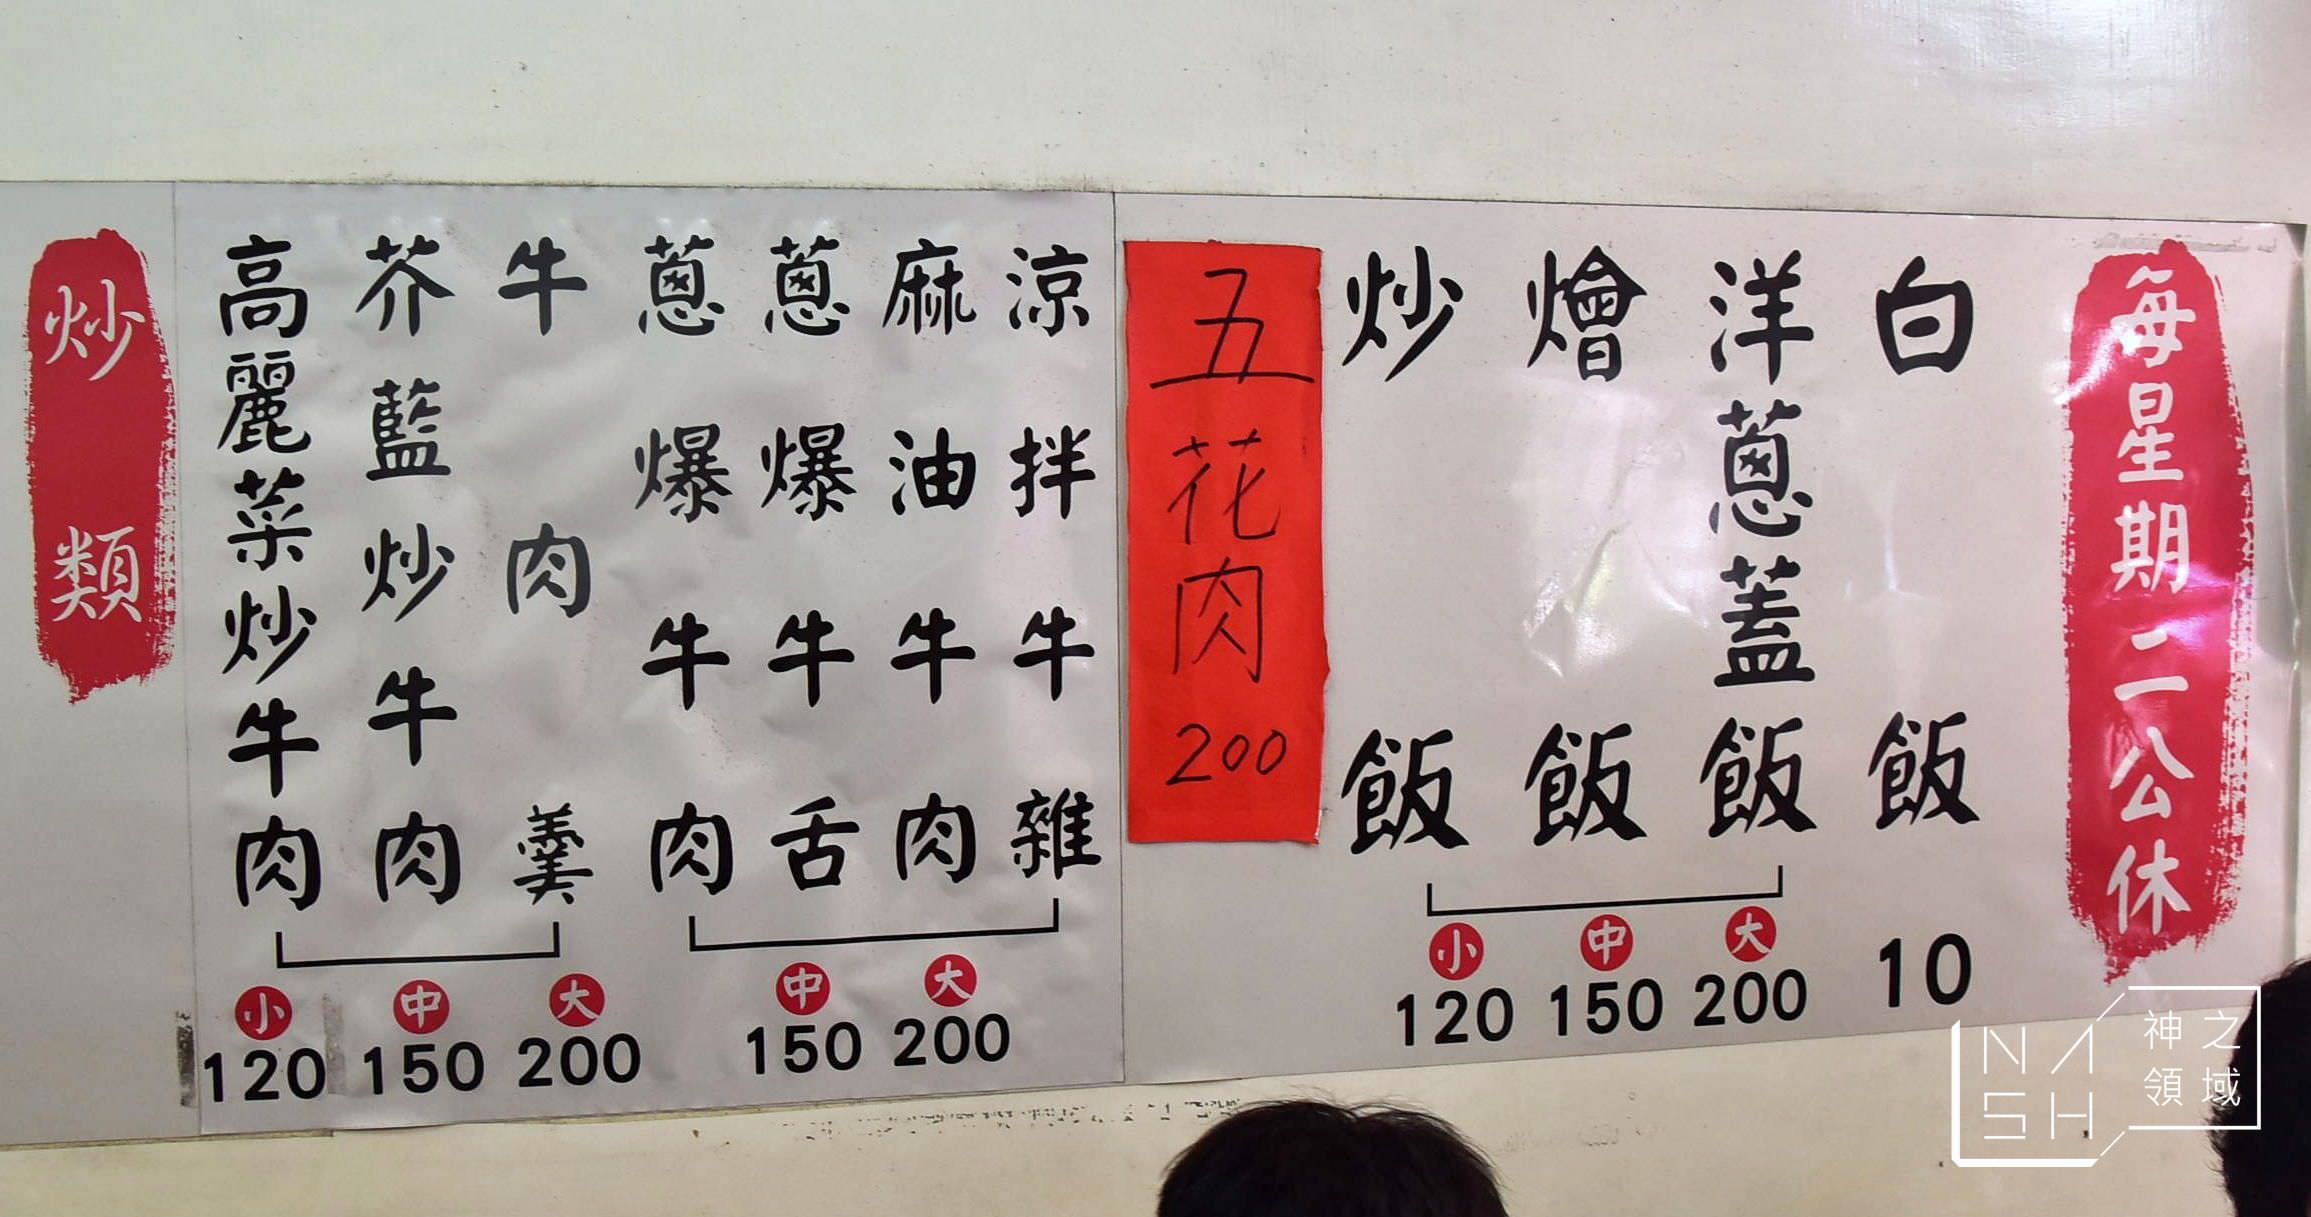 炒類
高麗菜炒牛肉
芥藍炒牛肉
牛肉羹
小 中 大
120 150 200
蔥爆牛肉
蔥爆牛舌
麻油牛肉
涼拌牛雜
中 大
150 200
五花肉 200
炒飯
燴飯
洋蔥蓋飯
小 中 大
120 150 200
白飯
10
每星期二公休
NASH
神之領域